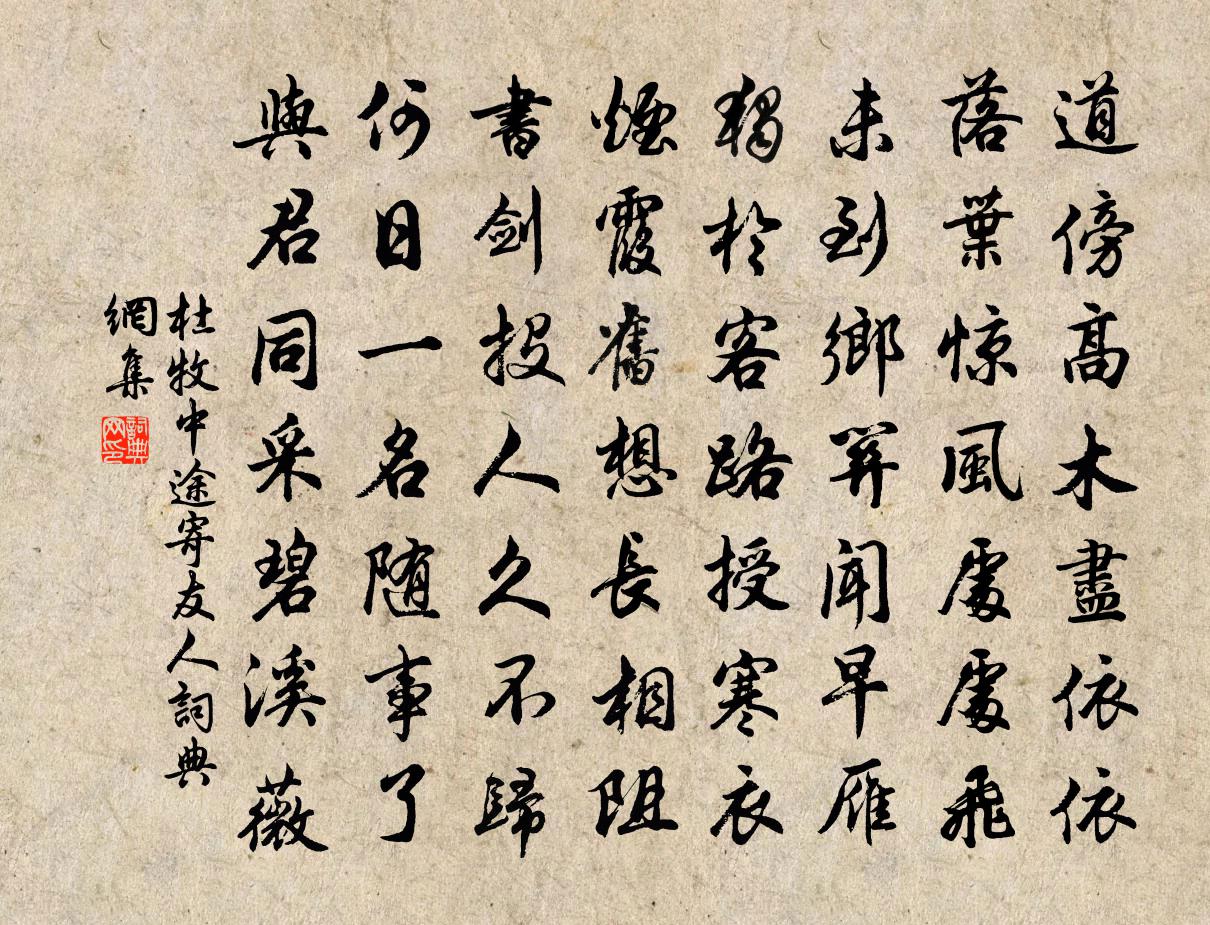 道傍高木盡依依
落葉惊風處處飛
未到鄉關聞早雁
獨於客路授寒衣
煙霞舊想長相阻
書劍投人久不歸
何日一名隨事了
與君同采碧溪薇
杜牧中途寄友人詞典
網集
詞典
网印